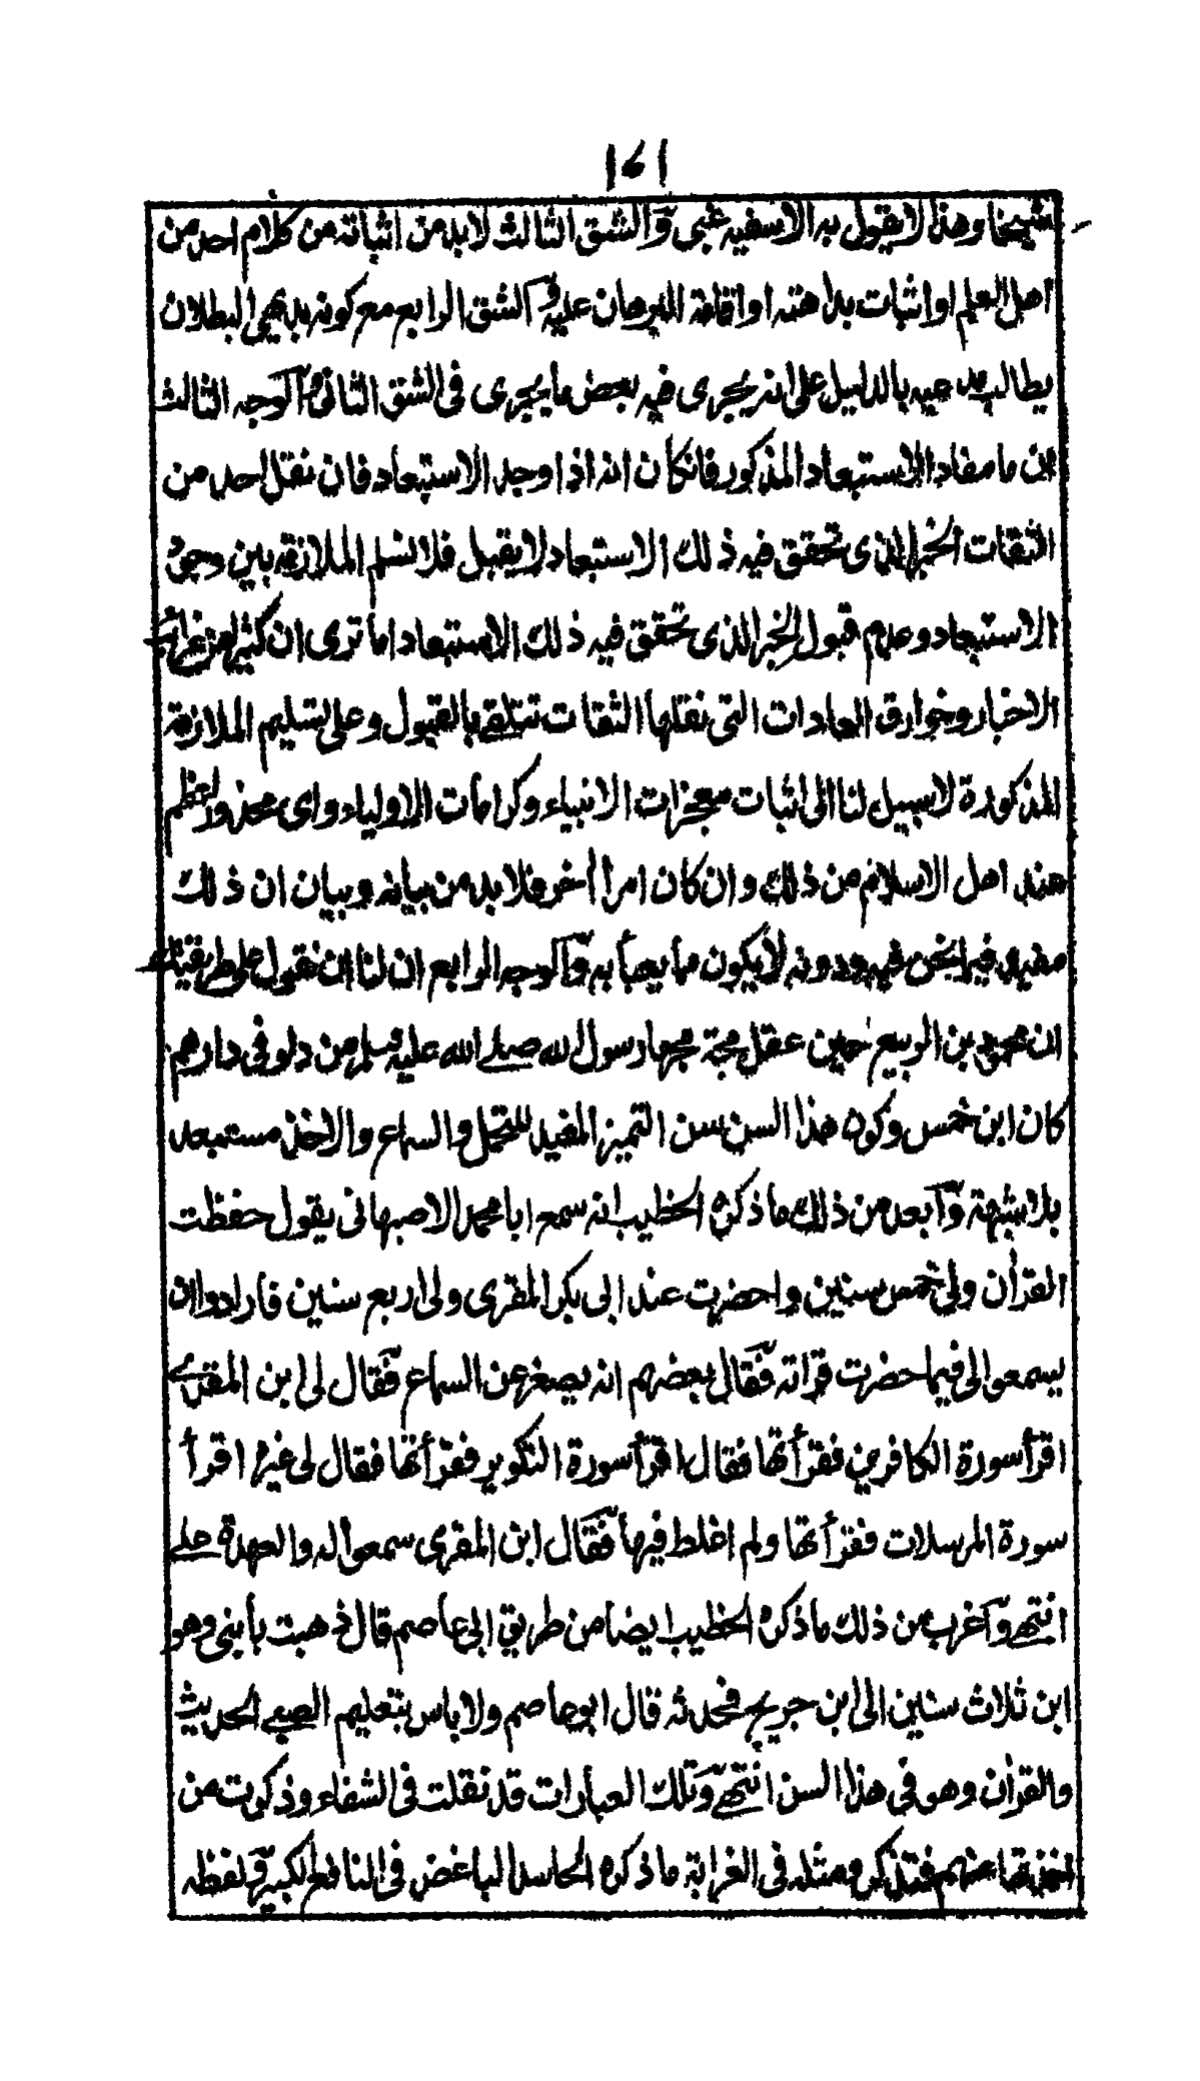 ١٧١
شيخنا وهذا لا يقول به الا سفيه غبي والشق الثالث لا بد من اثباته من كلام احد من
اهل العلم او اثبات بداهته او اقامة البرهان عليه والشق الرابع مع كونه بديهي البطلان
يطالب مدعيه بالدليل على انه يجرى فيه بعض ما يجرى فى الشق الثانى والوجه الثالث
ان ما مفاد الاستبعاد المذكور فان كان انه اذا وجد الاستبعاد فان نقل احد من
الثقات الخبر الذى تحقق فيه ذلك الاستبعاد لا يقبل فلا نسلم الملازمة بين وجود
الاستبعاد وعدم قبول الخبر الذى تحقق فيه ذلك الاستبعاد اما ترى ان كثيرا من غرائب
الاخبار وخوارق العادات التى نقلها الثقات تتلقى بالقبول وعلى تسليم الملازمة
المذكورة لا سبيل لنا الى اثبات معجزات الانبياء وكرامات الاولياء واى محذور اعظم
عند اهل الاسلام من ذلك وان كان امرا أخر فلا بد من بيانه وبيان ان ذلك
مفيد فيما نحن فيه ودونه لا يكون مما يعبأ به والوجه الرابع ان لنا ان نقول على طريقتك
ان محمود بن الربيع حين عقل مجة مجها رسول الله صلى الله عليه وسلم من دلو فى دارهم
كان ابن خمس وكون هذا السن سن التميز المفيد للتحمل والسماع والاخذ مستبعد
بلا شبهة وابعد من ذلك ما ذكره الخطيب انه سمع ابا محمد الاصبهانى يقول حفظت
القرأن ولى خمس سنين واحضرت عند ابى بكر المقرى ولى اربع سنين فارادوا ان
يسمعوا لى فيما حضرت قراته فقال بعضهم انه يصغر عن السماع فقال لى ابن المقرئ
اقرأ سورة الكافرين فقرأتها فقال اقرأ سورة التكوير فقرأتها فقال لى غيره اقرأ
سورة المرسلات فقرأتها ولم اغلط فيها فقال ابن المقرى سمعوا له والعهدة على
انتهى واغرب من ذلك ما ذكره الخطيب ايضا من طريق ابى عاصم قال ذهبت بابنى وهو
ابن ثلاث سنين الى ابن جريج فحدثه قال ابو عاصم ولا باس بتعليم الصبى الحديث
والقرأن وهو فى هذا السن انتهى وتلك العبارات قد نقلت فى الشفاء وذكرت من
اخذتها منهم فتذكر ومثله فى الغرابة ما ذكره الحاسد الباغض فى النافع الكبير ولفظه